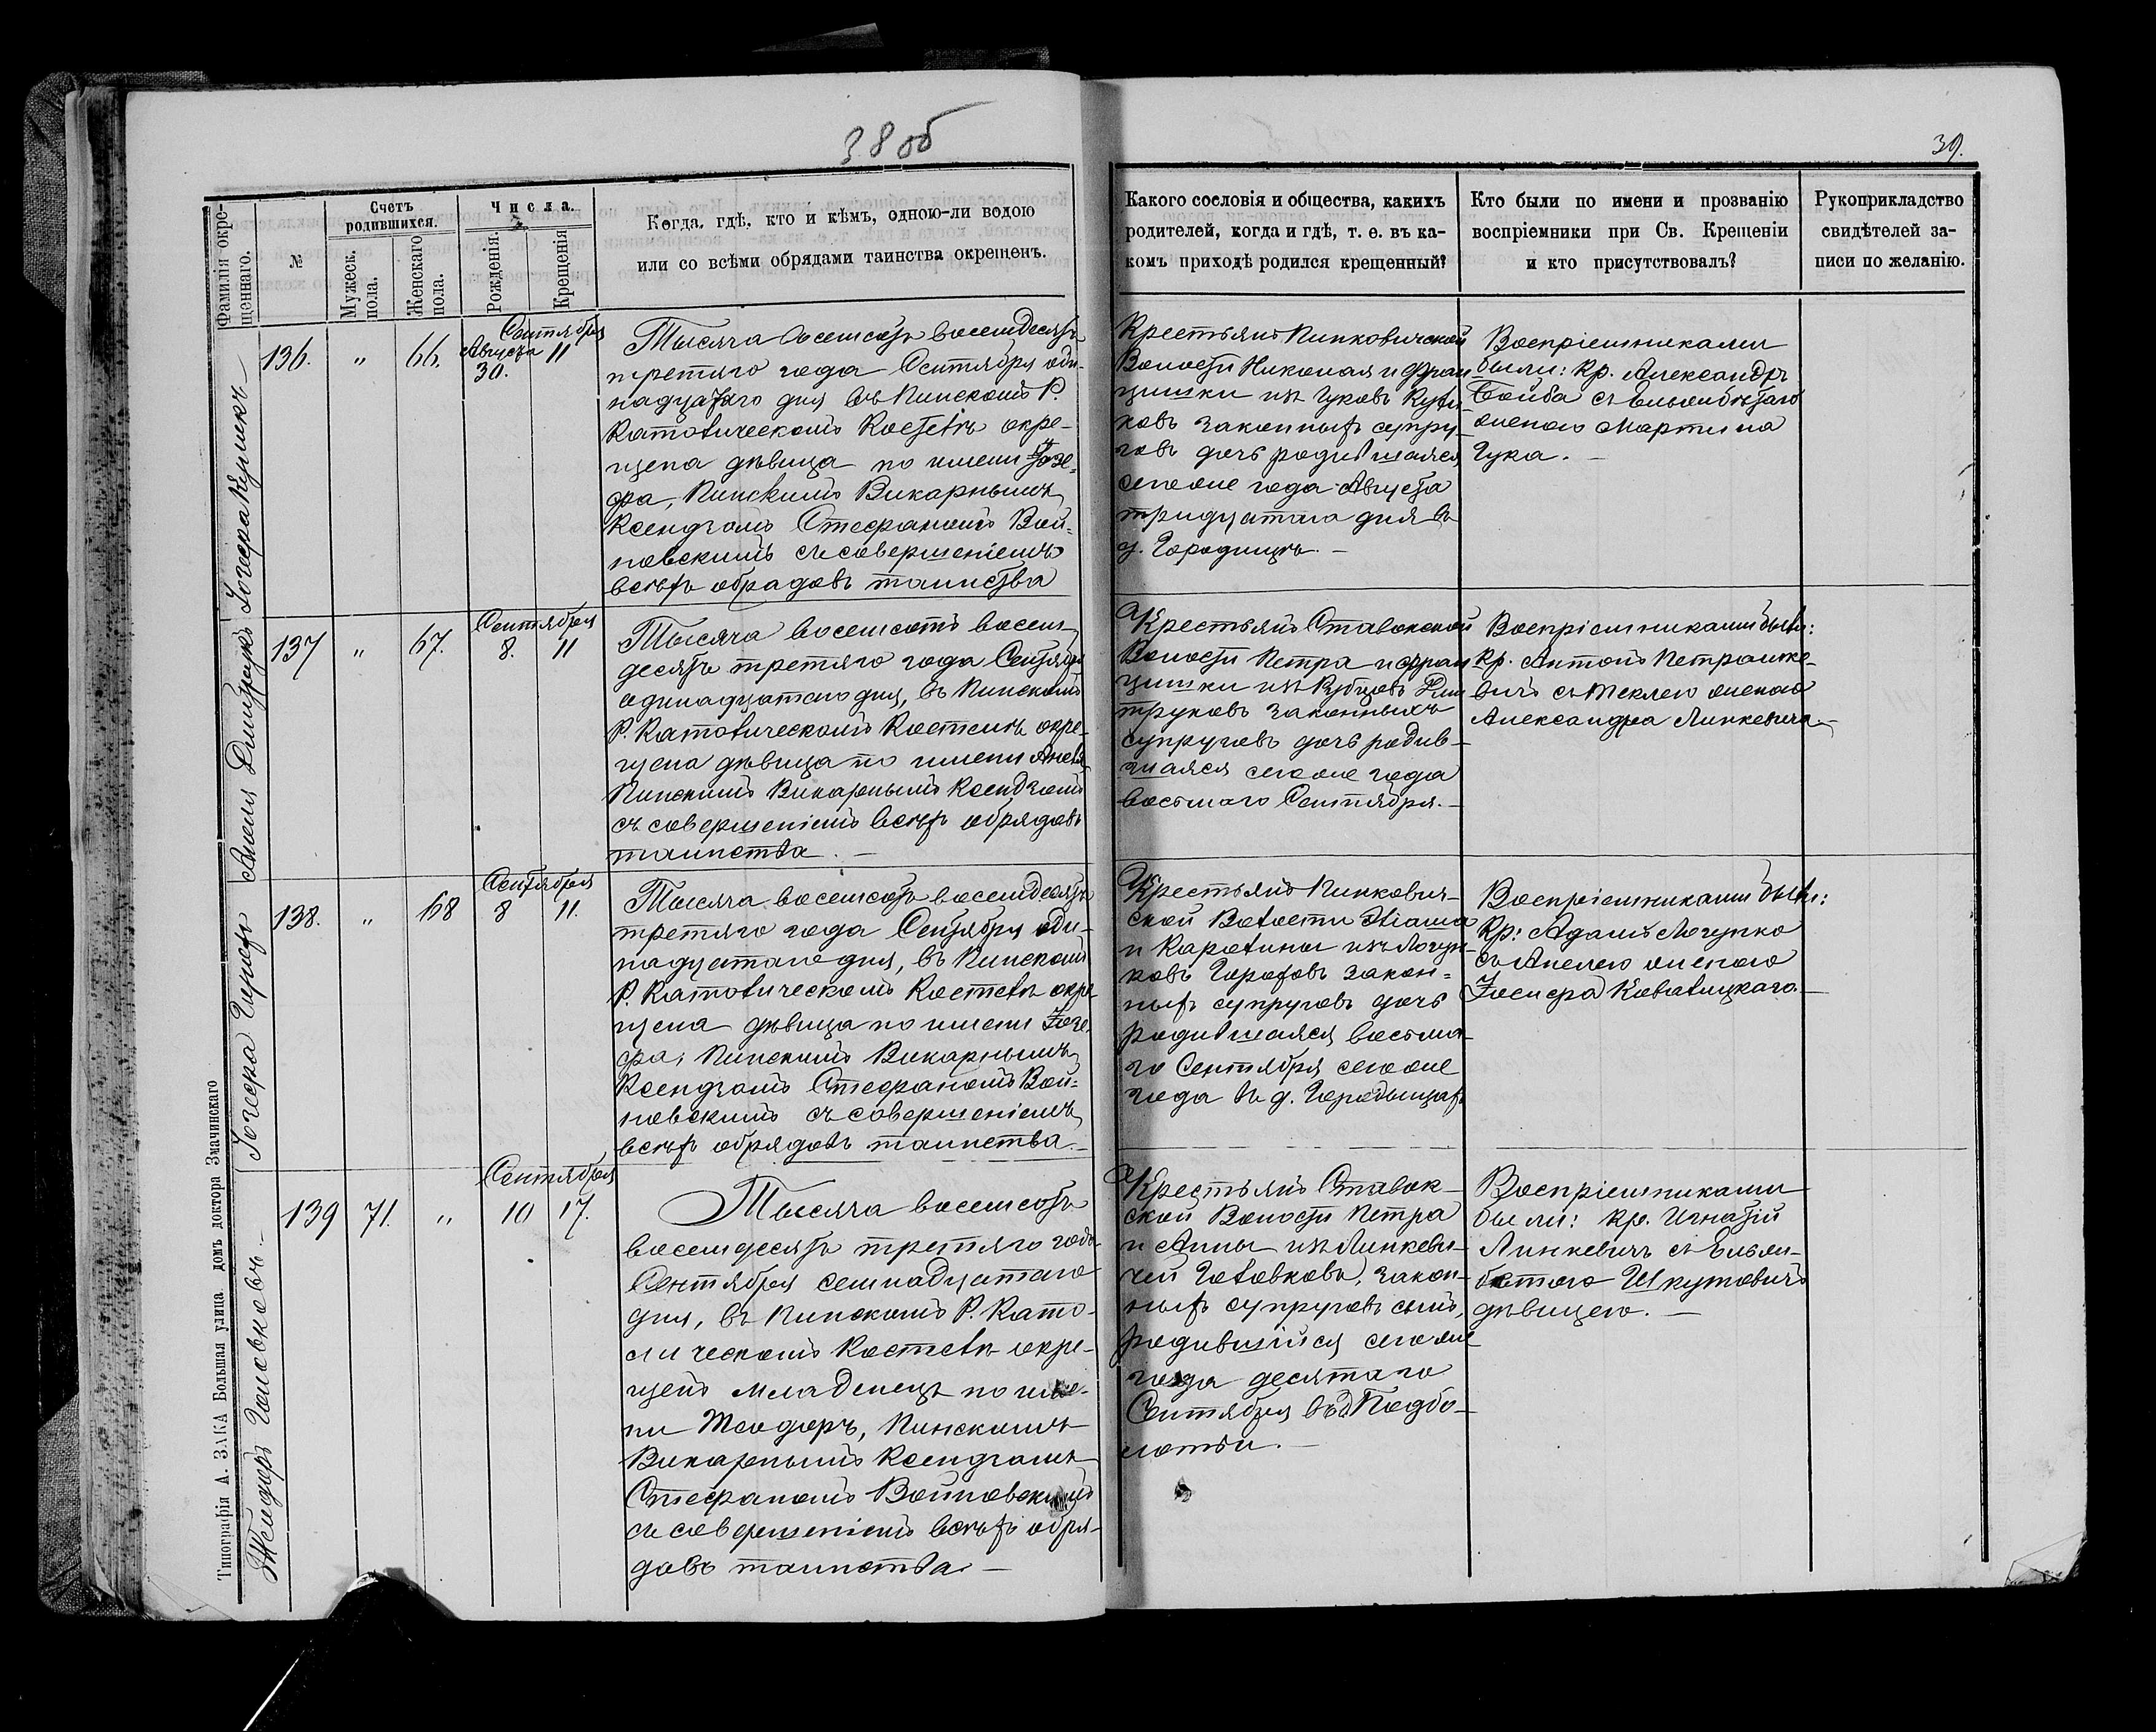 38 об
39.
Фамилія окре-
щеннаго.
№
Счетъ
родившихся.
Мужеск.
пола.
Женскаго
пола.
Числа.
Рожденія.
Крещенія
Когда, гдѣ, кто и кѣмъ, одною-ли водою
или со всѣми обрядами таинства окрещенъ.
Какого сословія и общества, какихъ
родителей, когда и гдѣ, т. е. въ ка-
комъ приходѣ родился крещенный?
Кто были по имени и прозванію
воспріемники при Св. Крещеніи
и кто присутствовалъ?
Рукоприкладство
свидѣтелей за-
писи по желанію.
Іозефа
136.
"
66.
Августа
30.
Сентября
11
Тысяча восемсотъ восемдесятъ
третяго года Сентября оди-
надцатаго дня въ Пинскомъ Р.
Католическомъ Костелѣ окре-
щена дѣвица по имени Іозе-
фа, Пинскимъ Викарнымъ
Ксендзомъ Стефаномъ Вой-
новскимъ съ совершеніемъ
всѣхъ обрадовъ таинства
Крестьянъ Пинковичской
Волости Николая и Фран
цишки изъ Чуковъ
ковъ законныхъ супру-
говъ дочь родившаяся
сегоже года Августа
тридцатаго дня въ
д. Городищѣ. –
Воспріемниками
были: Кр. Александръ
съ
женою Мартина
Чука. –
Анеля Дмитрукъ
137
"
67.
Сентября
8. 11
Тысяча восемсотъ восем
десятъ третяго года Сентября
одинадцатаго дня, въ Пинскомъ
Р. Католическомъ Костелѣ окре-
щена дѣвица по имени Анеля
Пинскимъ Викарнымъ Ксендзомъ
съ совершеніемъ всѣхъ обрядовъ
таинства. –
Крестьянъ Ставокской
Волости Петра и Фран
цишки изъ Дми
труковъ законныхъ
супруговъ дочь родив-
шаяся сегоже года
восьмаго Сентября. –
Воспріемниками были:
Кр. Антонъ Петраше-
вичъ съ Теклею женою
Александра Линкевича. –
Іозефа Горохъ
138.
"
68
Сентября
8 11.
Тысяча восемсотъ восемдесятъ
третяго года Сентября оди-
надцатаго дня, въ Пинскомъ
Р. Католическомъ Костелѣ окре
щена дѣвица по имени Іозе-
фа, Пинскимъ Викарнымъ
Ксендзомъ Стефаномъ Вой-
новскимъ съ совершеніемъ
всѣхъ обрядовъ таинства. –
Крестьянъ Пинкович-
ской Волости
и Каролины изъ Логун-
ковъ Гороховъ закон-
ныхъ супруговъ дочь
родившаяся восьма-
го Сентября сегоже
года въ д. Городищахъ
Воспріемниками были:
Кр: Адамъ Логунко
съ Анелею женою
Іосифа Ковалицкаго. –
Теодоръ Головковъ. –
139
71.
"
Сентября
10 17.
Тысяча восемсотъ
восемдесятъ третяго года
Сентября семнадцатаго
дня, въ Пинскомъ Р. Като-
лическомъ Костелѣ окре-
щенъ младенецъ по име-
ни Теодоръ, Пинскимъ
Викарнымъ Ксендзомъ
Стефаномъ Войновскимъ
съ совершеніемъ всѣхъ обря-
довъ таинства –
Крестьянъ Ставок-
ской Волости Петра
и Анны изъ Линкеви-
чей Головковъ, закон-
ныхъ супруговъ сынъ,
родившійся сегоже
года десятаго
Сентября въ д. Подбо-
лотьи. –
Воспріемниками
были: Кр. Игнатій
Линкевичъ съ Ельжи-
бетою Шкутовичъ
дѣвицею. –
Типографія А. ЗАКА Большая улица домъ доктора Змачинскаго